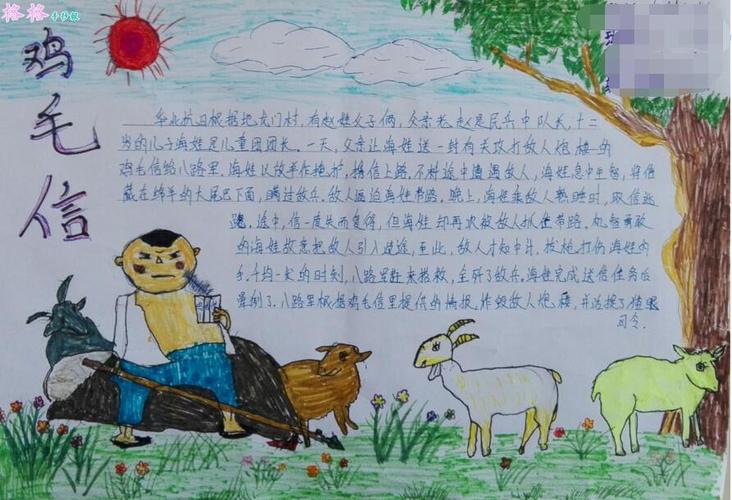 格格手抄报
鸡毛信
华北抗日根据地龙门村,有赵姓父子俩,父亲老赵是民兵中队长,十二
岁的儿子海娃是儿童团团长。一天,父亲让海娃送一封有关攻打敌人炮楼的
鸡毛信给八路军,海娃以放羊作掩护,携信上路,不料途中遭遇敌人,海娃急中生智,将信
藏在绵羊的大尾巴下面,瞒过敌兵,敌人逼迫海娃带路,晚上,海娃乘敌人熟睡时,取信逃
跑。途中,信一度失而复得,但海娃却再次被敌人抓住带路,机智勇敢
的海娃故意把敌人引入歧途,至此,敌人才知中计,抢枪打伤海娃的
手,千钧一发的时刻,八路军赶来抢救,全歼了敌兵。海娃完成送信任务后
晕倒了,八路军根据鸡毛信里提供的情报,炸毁敌人炮楼,并活捉了
司令。